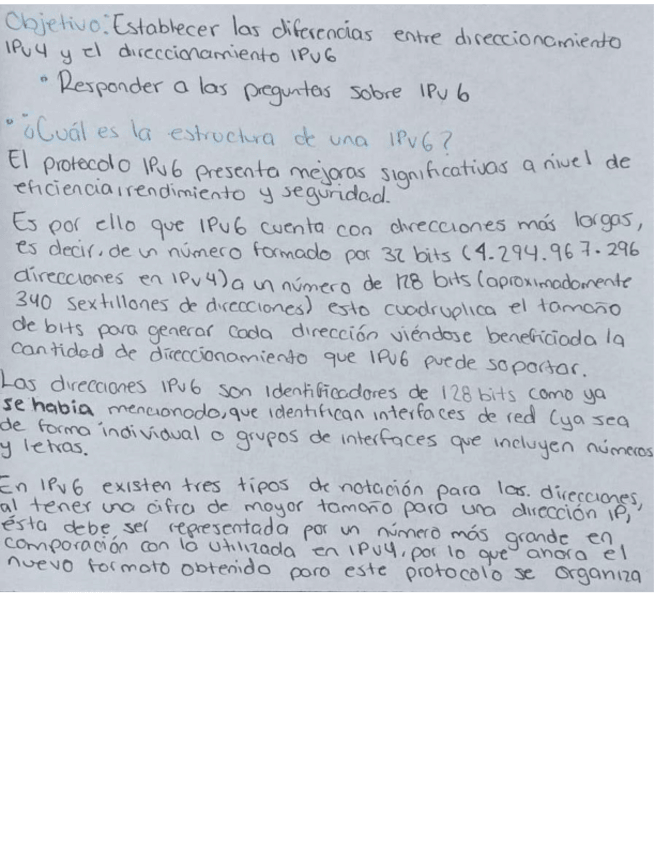 Objetivo: Establecer las diferencias entre direccionamiento
IPv4 y el direccionamiento IPv6
• Responder a las preguntas sobre IPv6
• ¿Cuál es la estructura de una IPv6?
El protocolo IPv6 presenta mejoras significativas a nivel de
eficiencia, rendimiento y seguridad.
Es por ello que IPv6 cuenta con direcciones más largas,
es decir, de un número formado por 32 bits (4.294.967.296
direcciones en IPv4) a un número de 128 bits (aproximadamente
340 sextillones de direcciones) esto cuadruplica el tamaño
de bits para generar cada dirección viéndose beneficiada la
cantidad de direccionamiento que IPv6 puede soportar.
Las direcciones IPv6 son identificadores de 128 bits como ya
se habia mencionado, que identifican interfaces de red (ya sea
de forma individual o grupos de interfaces que incluyen números
y letras.
En IPv6 existen tres tipos de notación para las. direcciones,
al tener una cifra de mayor tamaño para una dirección IP,
ésta debe ser representada por un número más grande en
comparación con la utilizada en IPv4, por lo que ahora el
nuevo formato obtenido para este protocolo se organiza